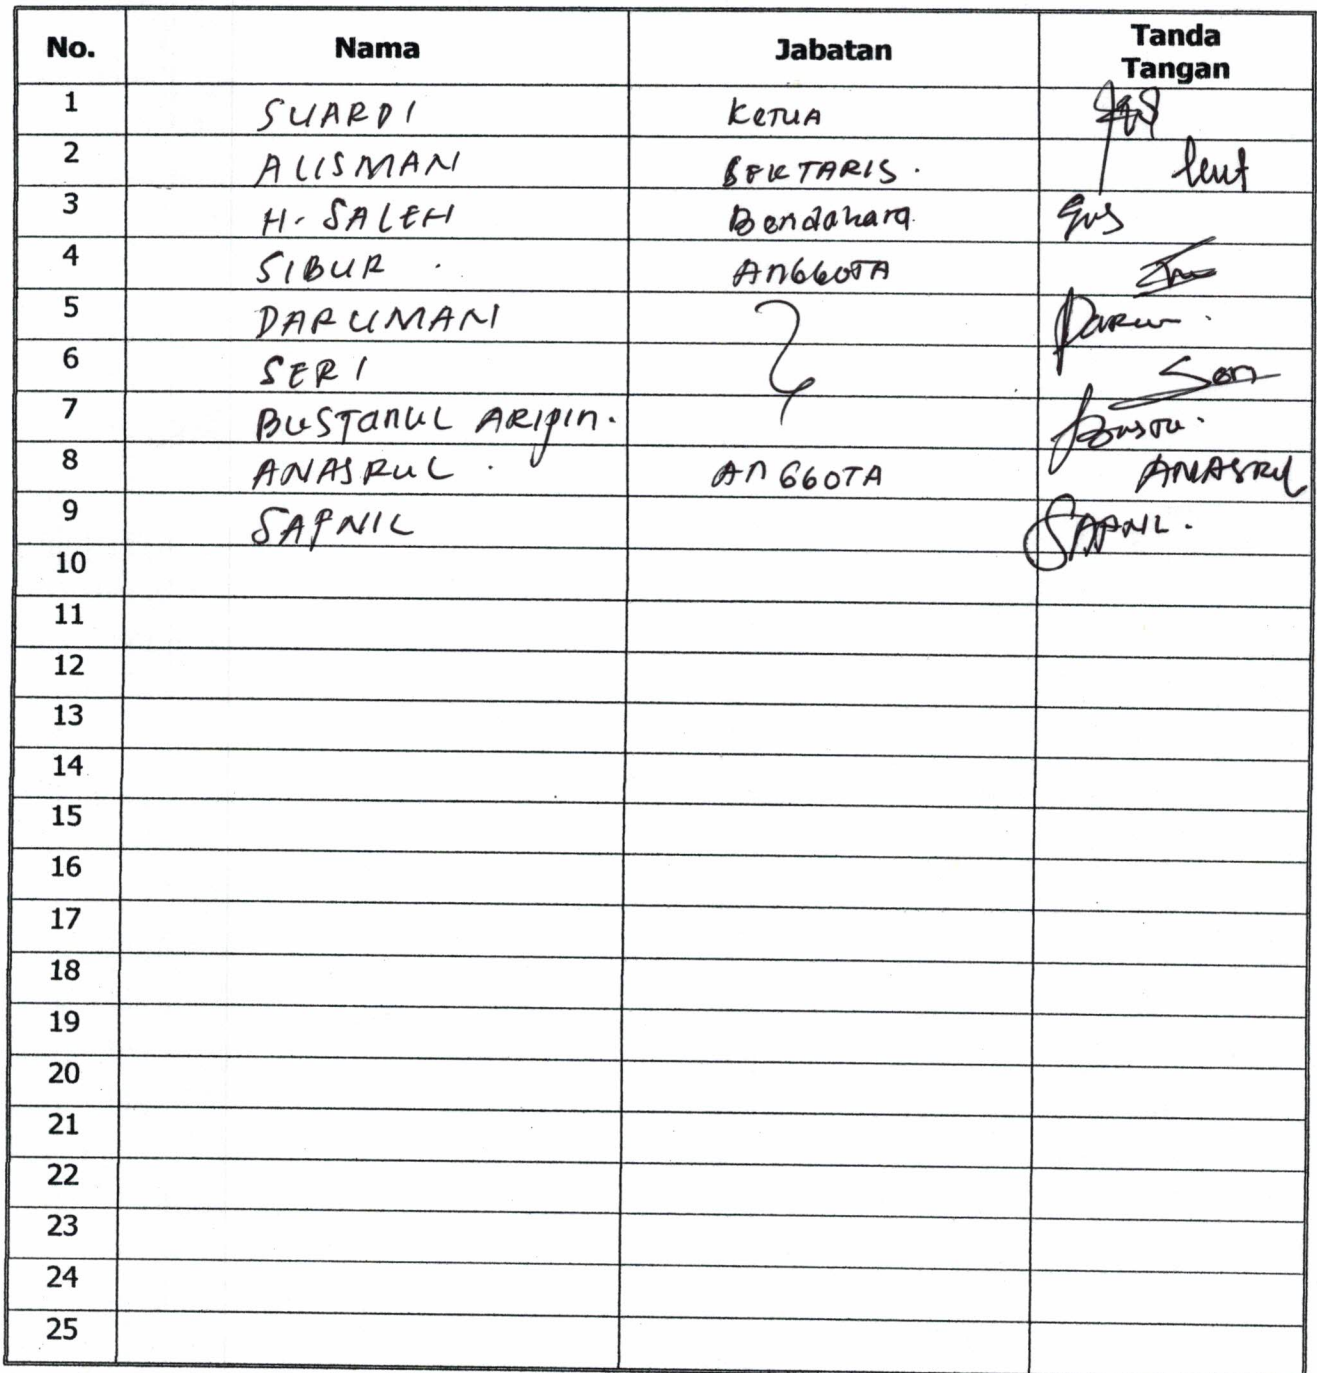 No. Nama Jabatan Tanda Tangan
1 SUARDI KETUA
2 ALISMAN SEKTARIS.
3 H. SALEH Bendahara
4 SIBUR . ANGGOTA
5 DARUMAN Daru
6 SERI Seri
7 BUSTANUL ARIPIN. Busta.
8 ANASRUL . ANGGOTA ANASRUL
9 SAPNIL SAPNIL.
10
11
12
13
14
15
16
17
18
19
20
21
22
23
24
25